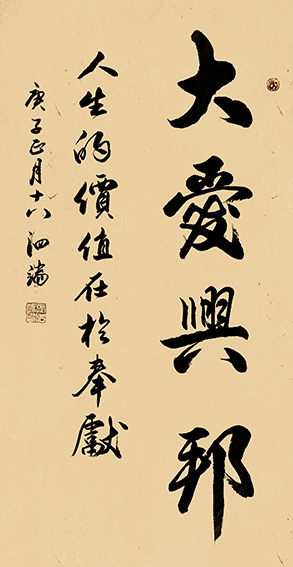 大愛興邦
人生的價值在於奉獻
庚子正月十八泗端